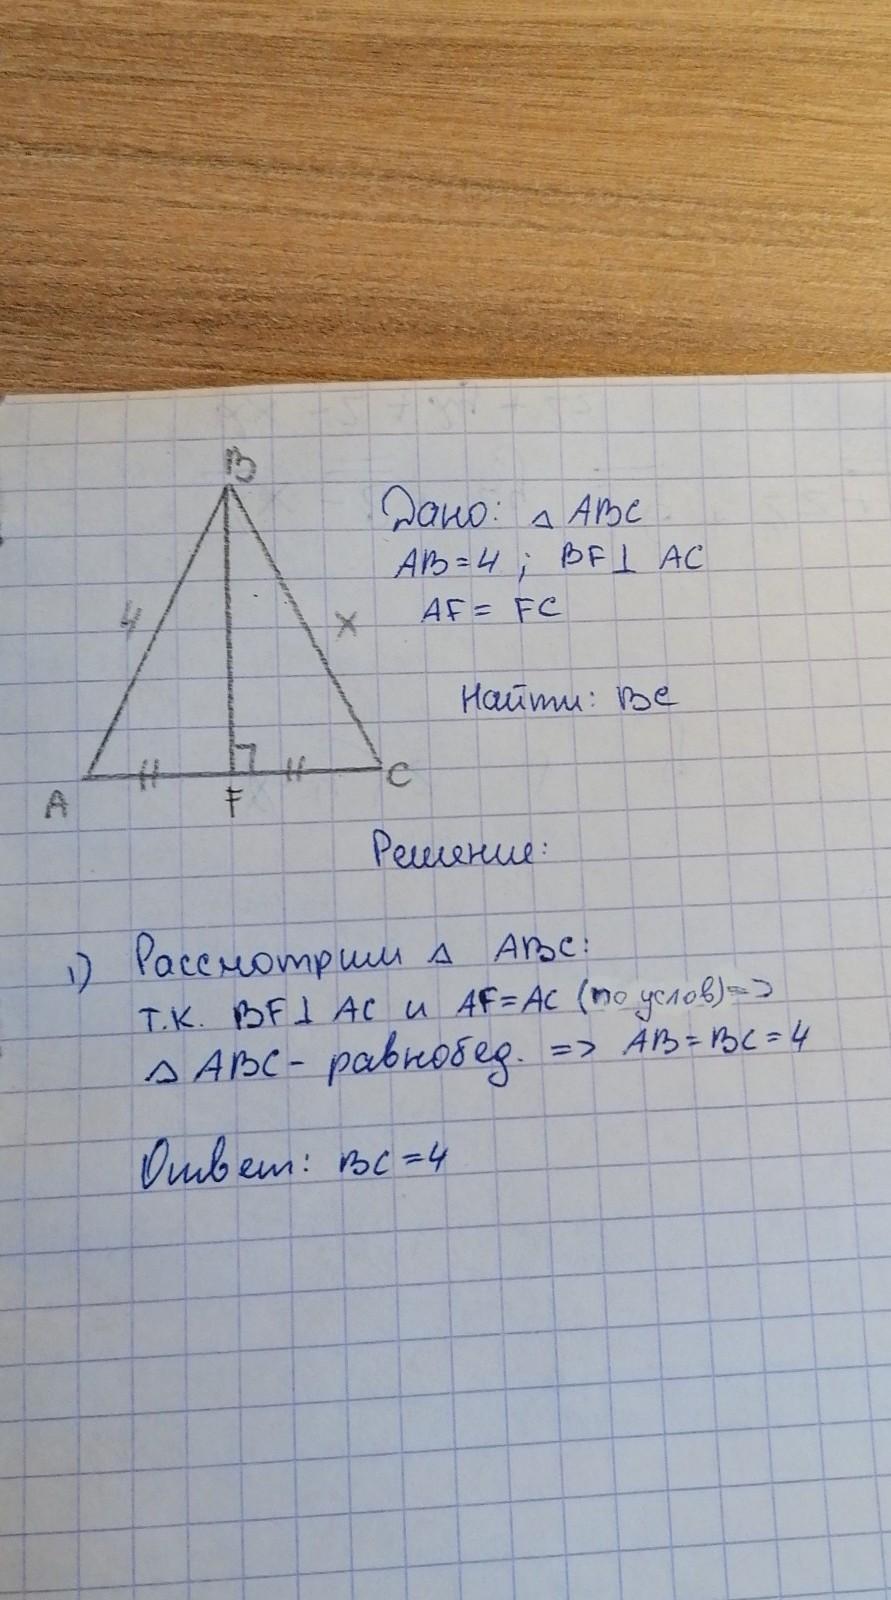 B
Дано: △ ABC
AB=4 ; BF⊥ AC
4
x
AF= FC
Найти: BC
A
F
C
Решение:
1) Рассмотрим △ ABC:
т.к. BF⊥ AC и AF=AC (по услов)=>
△ ABC- равнобед. => AB=BC=4
Ответ: BC=4